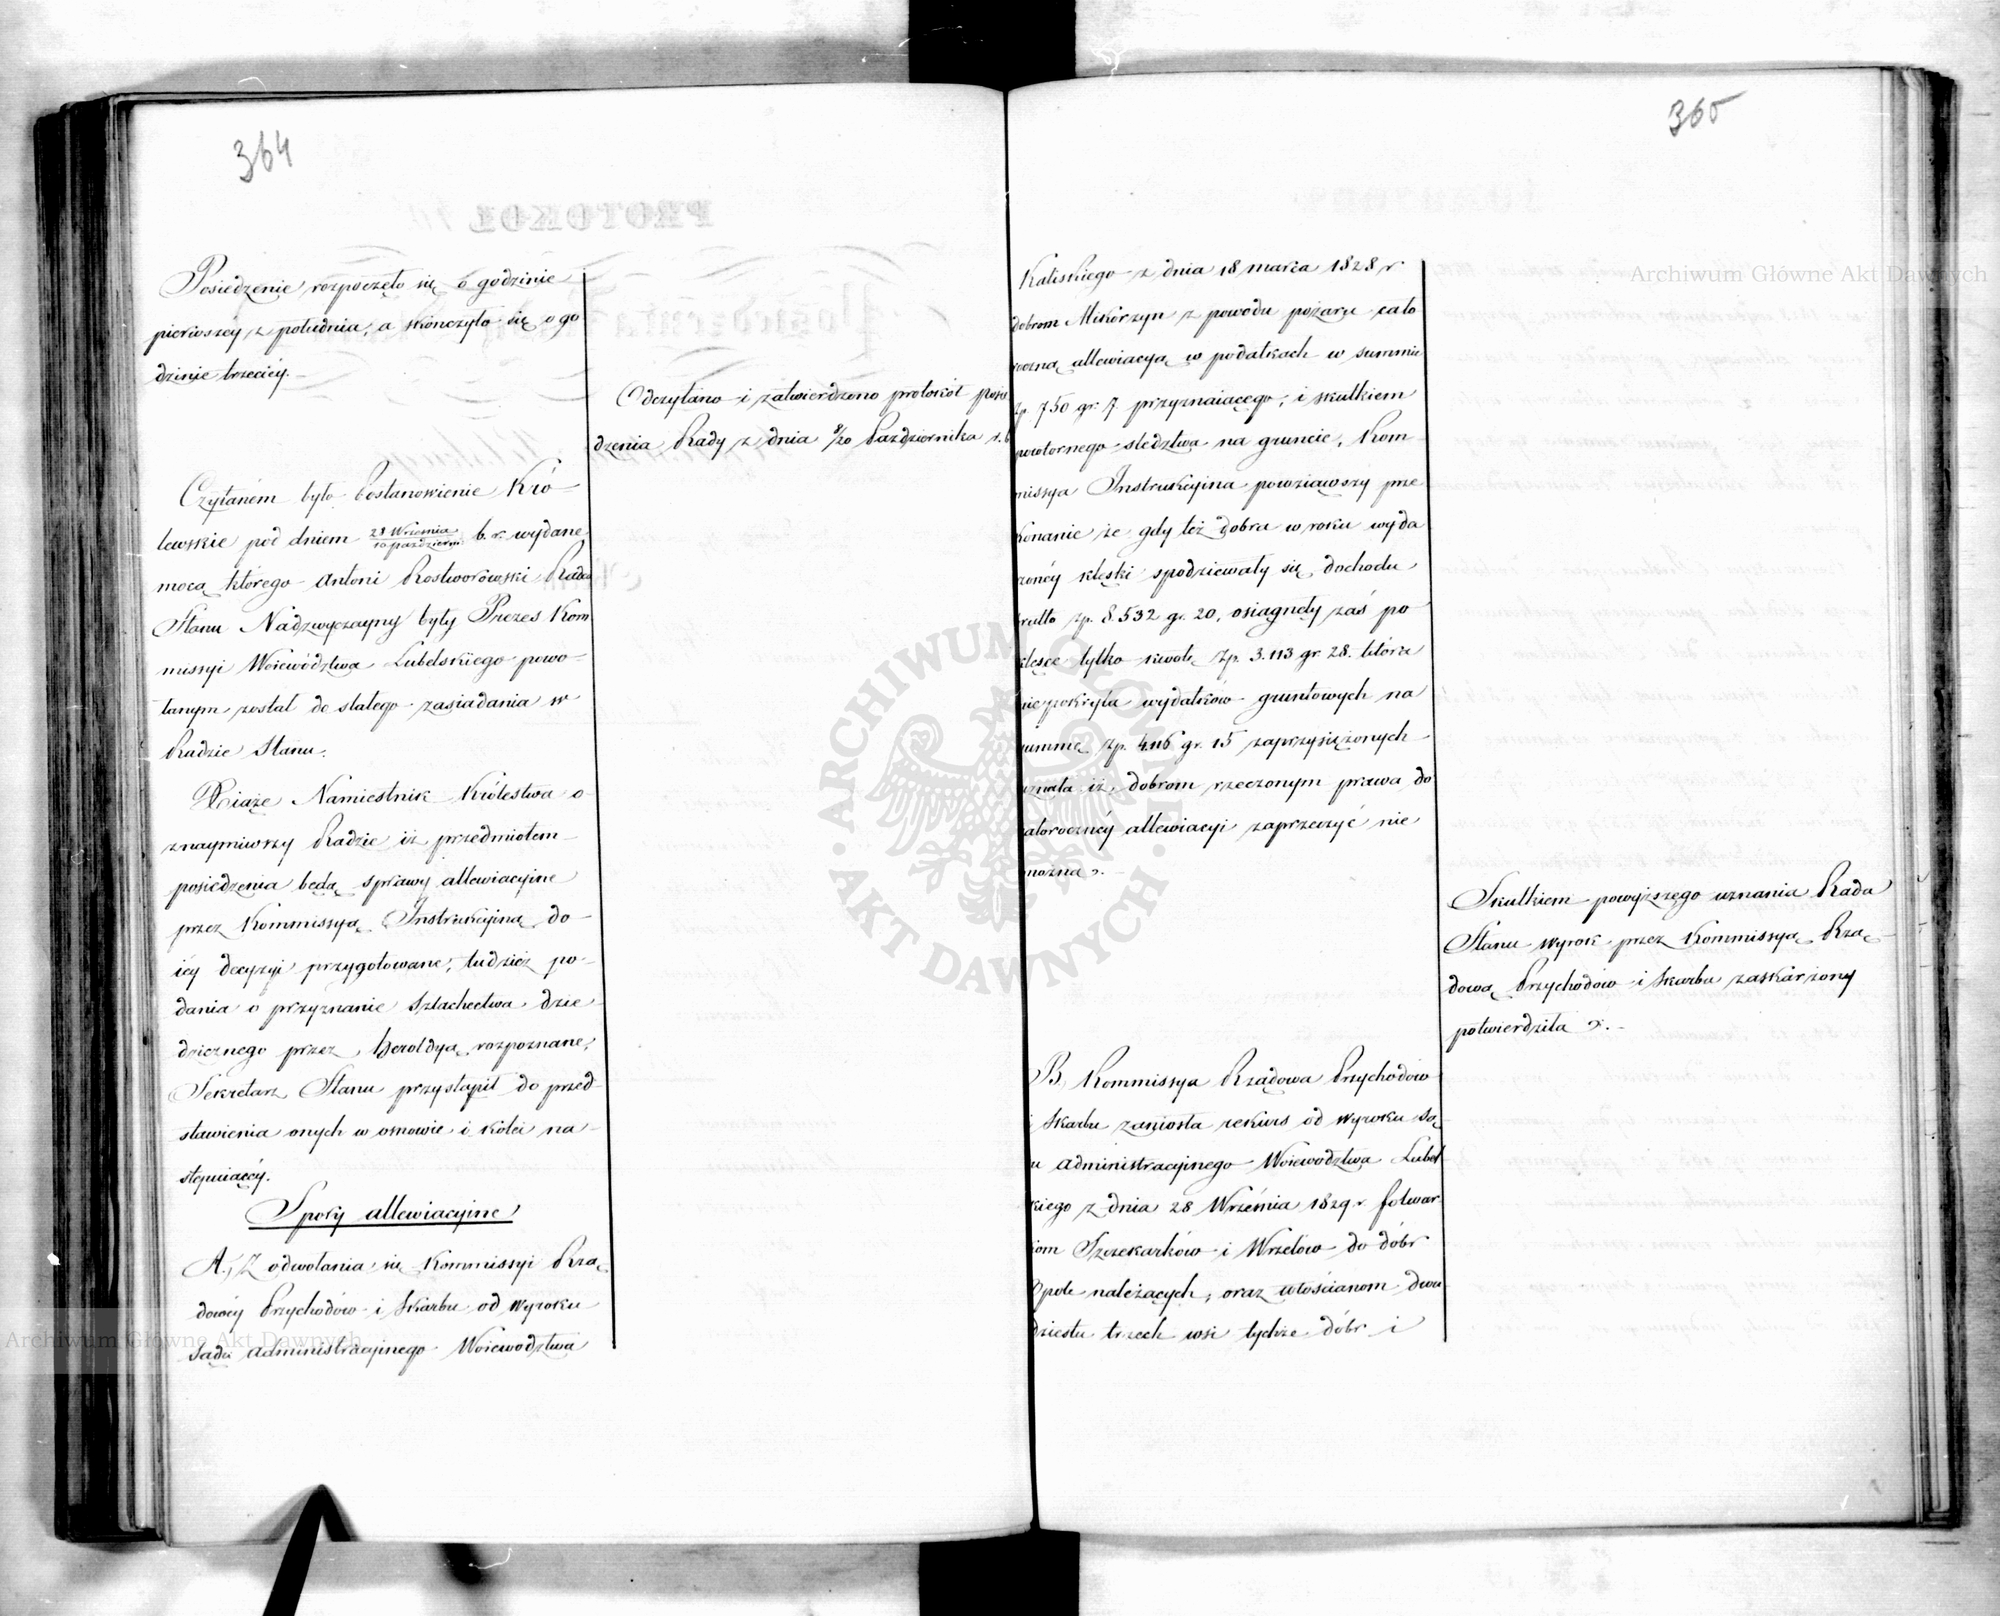 364
Posiedzenie rozpoczęło się o godzinie
pierwszéy z południa, a skończyło się o go
dzinie trzeciéy.
Odczytano i zatwierdzono protokół posie
dzenia Rady z dnia 8/20 Października r. b
Czytaném było Postanowienie Kró-
lewskie pod dniem 28 Września/10 Październi: b. r. wydane,
mocą którego Antoni Rostworowski Radca
Stanu Nadzwyczayny były Prezes Kom
missyi Woiewództwa Lubelskiego powo-
łanym został do stałego zasiadania w
Radzie Stanu.
Xiąże Namiestnik Królestwa o-
znaymiwszy Radzie iż przedmiotem
posiedzenia będą sprawy allewiacyine
przez Kommissyą Instrukcyiną do
iey decyzyi przygotowane, tudzież po-
dania o przyznanie Szlachectwa dzie-
dzicznego przez Heroldyą rozpoznane,
Sekretarz Stanu przystąpił do przed-
stawienia onych w osnowie i kolei na-
stępuiącéy.
Spory allewiacyine
A., Z odwołania się Kommissyi Rzą-
dowéy Przychodów i Skarbu od wyroku
Sądu administracyinego Woiewództwa
365
Kaliskiego z dnia 18 marca 1828 r
dobrom Mikorzyn z powodu pożaru cało
roczną allewiacyą w podatkach w summie
zp. 750 gr. 7. przyznaiącego, i skutkiem
powtornego śledztwa na gruncie, Kom-
missya Instrukcyina powziąwszy prze
konanie że gdy też dobra w roku wyda
rzonéy klęski spodziewały się dochodu
brutto zp. 8.532 gr. 20, osiągnęły zaś po
klęsce tylko kwotę zp. 3.113 gr. 28. która
nie pokryła wydatków gruntowych na
summę zp. 4116 gr. 15 zaprzysiężonych
uznała iż dobrom rzeczonym prawa do
całorocznéy allewiacyi zaprzeczyć nie
można.
Skutkiem powyższego uznania Rada
Stanu wyrok przez Kommissyą Rzą-
dową Przychodów i Skarbu zaskarżony
potwierdziła.
B, Kommissya Rządowa Przychodów
i Skarbu zaniosła rekurs od wyroku Są
du administracyinego Woiewództwa Lubel
skiego z dnia 28 Września 1829 r. folwar
kom Szczekarków i Wrzelów do dóbr
Opole należących, oraz włościanom dwu
dziestu trzech wsi tychże dóbr i
Archiwum Główne Akt Dawnych
Archiwum Główne Akt Dawnych
ARCHIWUM GŁÓWNE AKT DAWNYCH